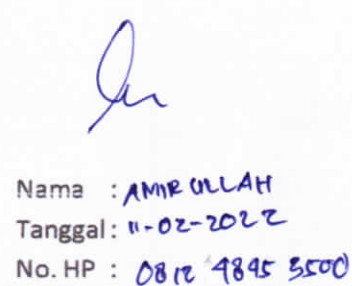 Nama : AMIRULLAH
Tanggal : 11-02-2022
No. HP : 0812 4895 3500